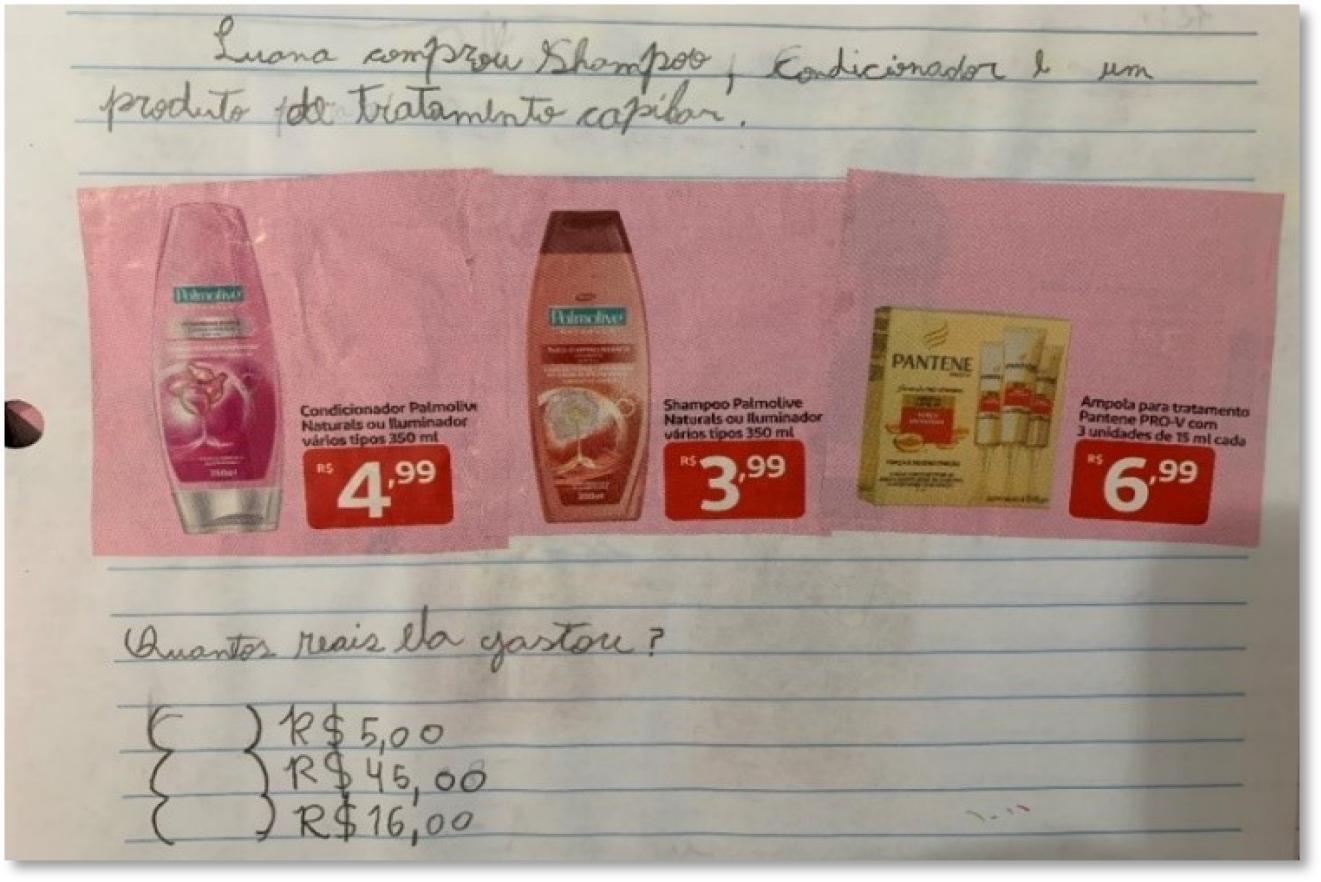 Luana comprou Shampoo, Condicionador e um
produto de tratamento capilar.
Palmolive
350ml
Condicionador Palmolive
Naturals ou Iluminador
vários tipos 350 ml
R$ 4,99
Palmolive
350ml
Shampoo Palmolive
Naturals ou Iluminador
vários tipos 350 ml
R$ 3,99
PANTENE
Ampola para tratamento
Pantene PRO-V com
3 unidades de 15 ml cada
R$ 6,99
Quantos reais ela gastou?
( ) R$ 5,00
( ) R$ 45,00
( ) R$ 16,00